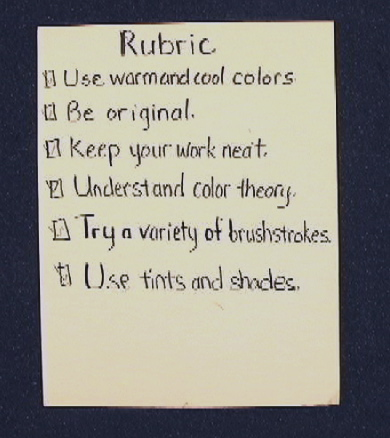 Rubric
Use warm and cool colors
Be original.
Keep your work neat.
Understand color theory.
Try a variety of brushstrokes.
Use tints and shades.